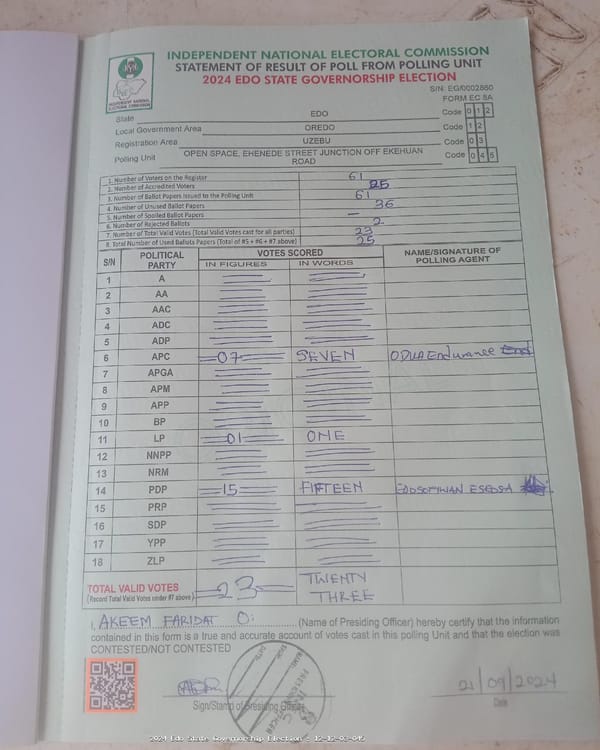 INDEPENDENT NATIONAL ELECTORAL COMMISSION
STATEMENT OF RESULT OF POLL FROM POLLING UNIT
2024 EDO STATE GOVERNORSHIP ELECTION
S/N: EG/0002860
FORM EC 8A
INDEPENDENT NATIONAL ELECTORAL COMMISSION
State EDO Code 0 1 2
Local Government Area OREDO Code 1 2
Registration Area UZEBU Code 0 3
Polling Unit OPEN SPACE, EHENEDE STREET JUNCTION OFF EKEHUAN ROAD Code 0 4 5
1. Number of Voters on the Register 61
2. Number of Accredited Voters 25
3. Number of Ballot Papers Issued to the Polling Unit 61
4. Number of Unused Ballot Papers 36
5. Number of Spoiled Ballot Papers —
6. Number of Rejected Ballots 2
7. Number of Total Valid Votes (Total Valid Votes cast for all parties) 23
8. Total Number of Used Ballots Papers (Total of #5 + #6 + #7 above) 25
S/N POLITICAL PARTY VOTES SCORED NAME/SIGNATURE OF POLLING AGENT
IN FIGURES IN WORDS
1 A
2 AA
3 AAC
4 ADC
5 ADP
6 APC 07 SEVEN Endurance
7 APGA
8 APM
9 APP
10 BP
11 LP 01 ONE
12 NNPP
13 NRM
14 PDP 15 FIFTEEN
15 PRP
16 SDP
17 YPP
18 ZLP
TOTAL VALID VOTES 23 TWENTY THREE
(Record Total Valid Votes under #7 above)
I, AKEEM FARIDAT O. (Name of Presiding Officer) hereby certify that the information
contained in this form is a true and accurate account of votes cast in this polling Unit and that the election was
CONTESTED/NOT CONTESTED
21/09/2024
Sign/Stamp of Presiding Officer Date
2024 Edo State Governorship Election - 12-12-03-045